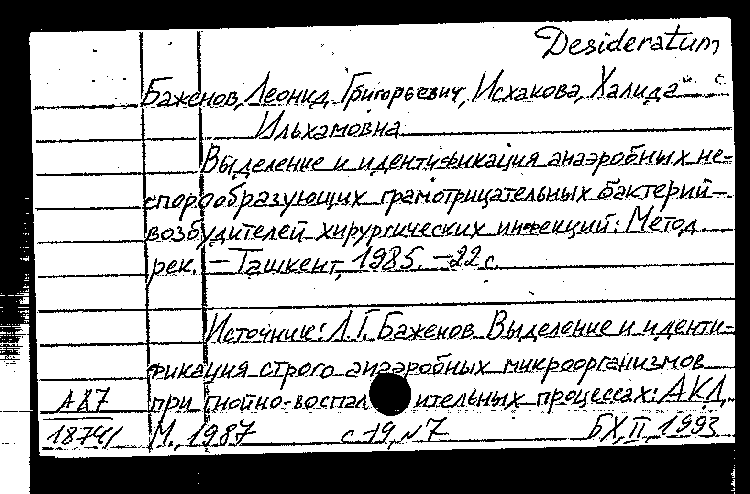 Desideratum
Баженов, Леонид Григорьевич, Исхакова, Халида
Ильхамовна
Выделение и идентификация анаэробных не-
спорообразующих грамотрицательных бактерий—
возбудителей хирургических инфекций: Метод.
рек. — Ташкент, 1985. — 22 с.
Источник: Л.Г. Баженов Выделение и иденти-
фикация строго анаэробных микроорганизмов
при гнойно-воспал ительных процессах: АКД,
М., 1987 с 19, №7 БХ, II, 1993
А87
18741